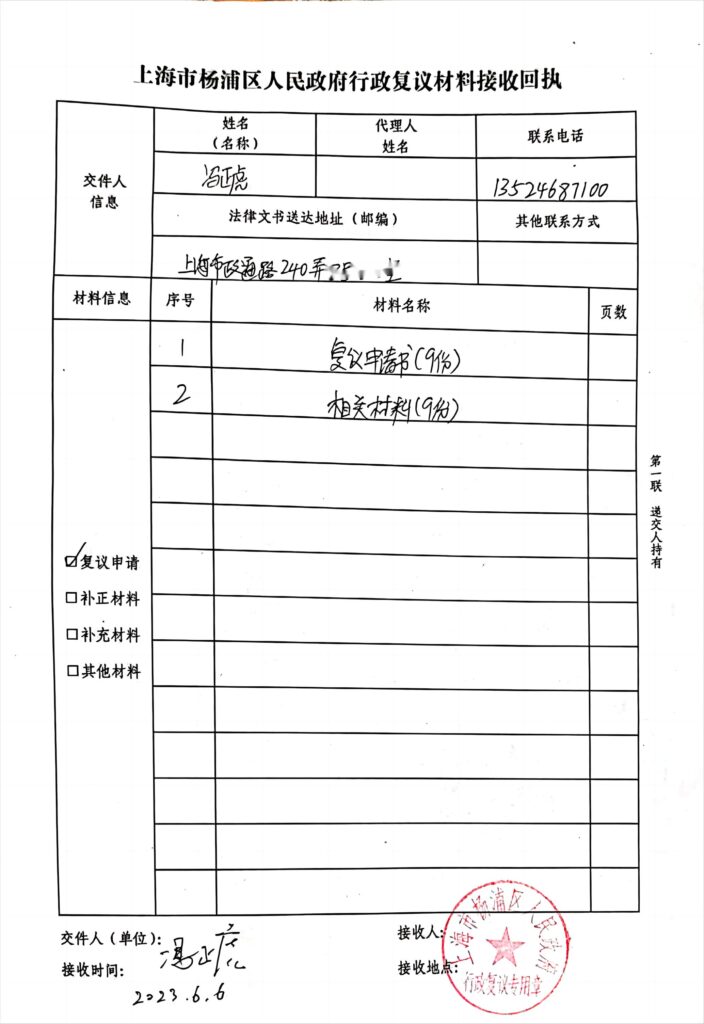 上海市杨浦区人民政府行政复议材料接收回执
交件人信息
姓名(名称)
代理人姓名
联系电话
冯正虎
13524687100
法律文书送达地址(邮编)
其他联系方式
上海市政通路240弄
室
材料信息
序号
材料名称
页数
1
复议申请书(9份)
2
相关材料(9份)
☑复议申请
□补正材料
□补充材料
□其他材料
第一联 递交人持有
交件人(单位):
冯正虎
接收时间:
2023.6.6
接收人:
接收地点:
上海市杨浦区人民政府
行政复议专用章